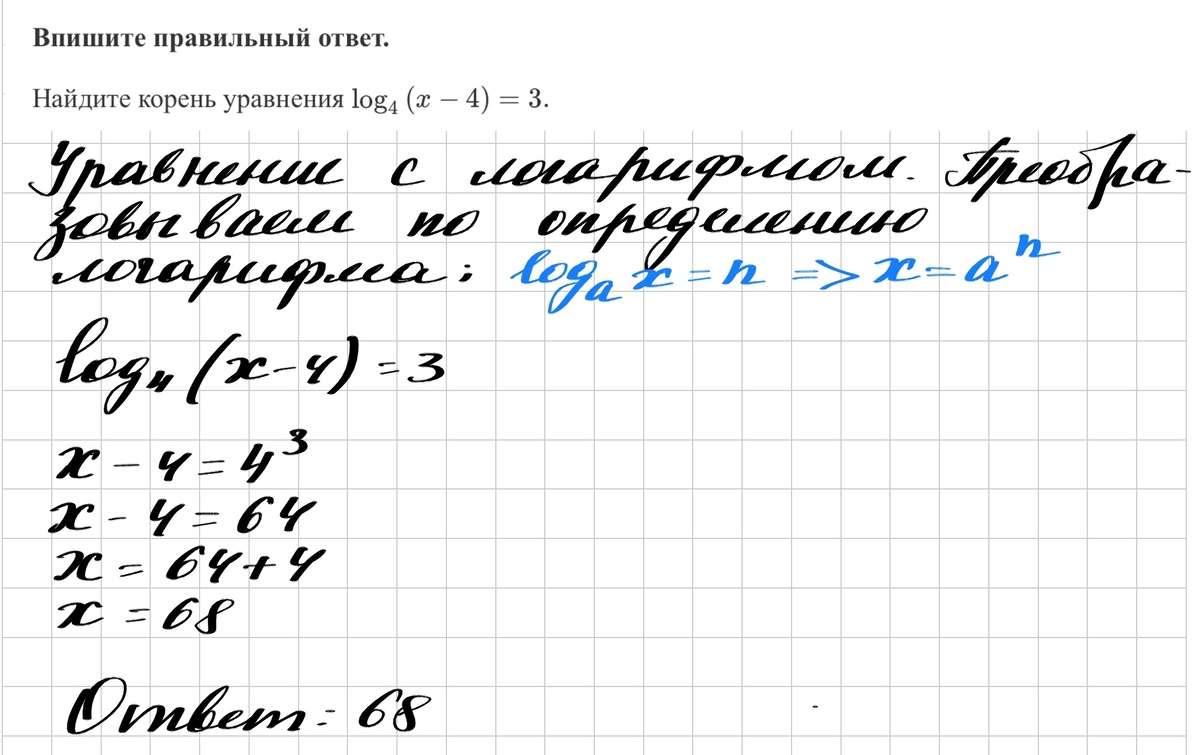 Впишите правильный ответ.
Найдите корень уравнения log₄ (x − 4) = 3.
Уравнение с логарифмом. Преобра-
зовываем по определению
логарифма: logₐ x = n => x = aⁿ
log₄ (x-4) = 3
x - 4 = 4³
x - 4 = 64
x = 64+4
x = 68
Ответ: 68